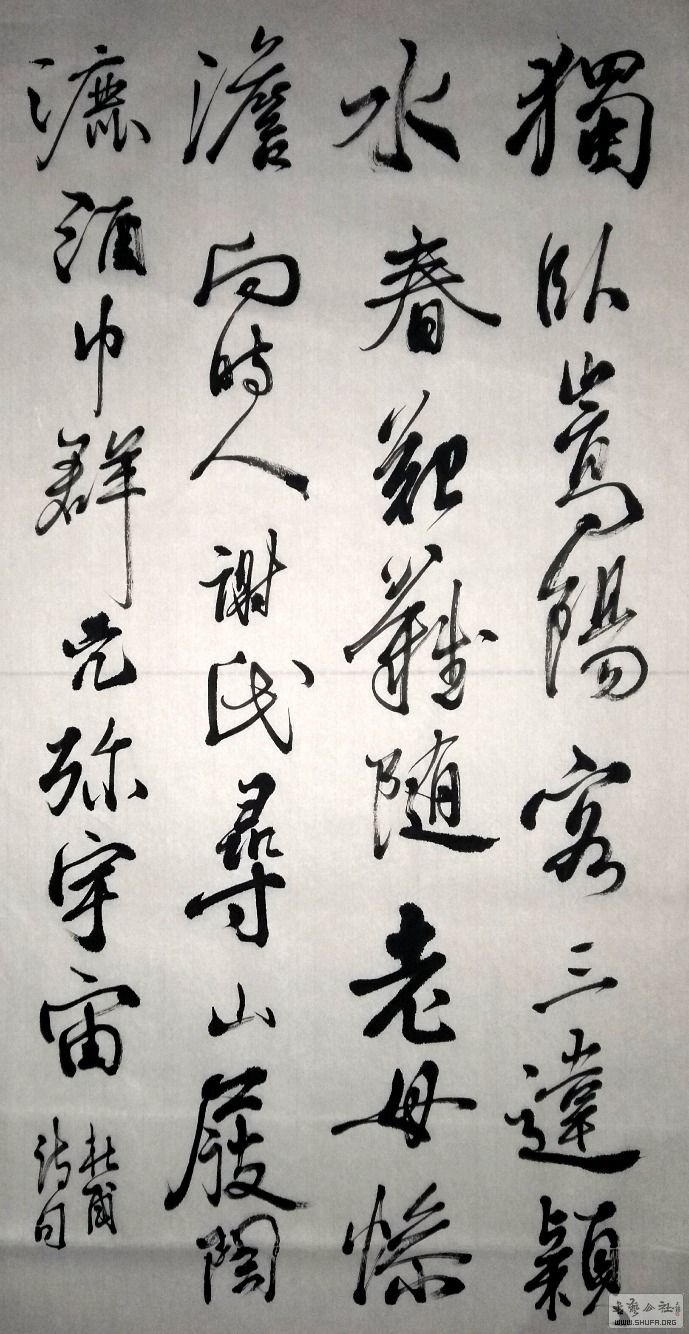 獨臥嵩陽客三違潁
水春艱難隨老母慘
澹向時人謝氏尋山屐陶
漉酒巾群兇弥宇宙
杜甫
詩句
WWW.SHUFA.ORG